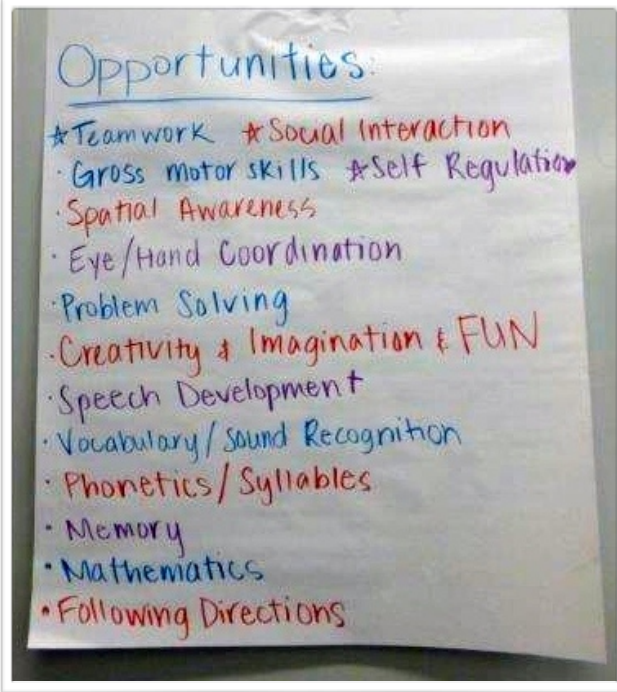 Opportunities:
☆Teamwork ☆Social Interaction
· Gross motor skills ☆Self Regulation
· Spatial Awareness
· Eye/Hand Coordination
· Problem Solving
· Creativity & Imagination & FUN
· Speech Development
· Vocabulary/Sound Recognition
· Phonetics/Syllables
· Memory
· Mathematics
· Following Directions